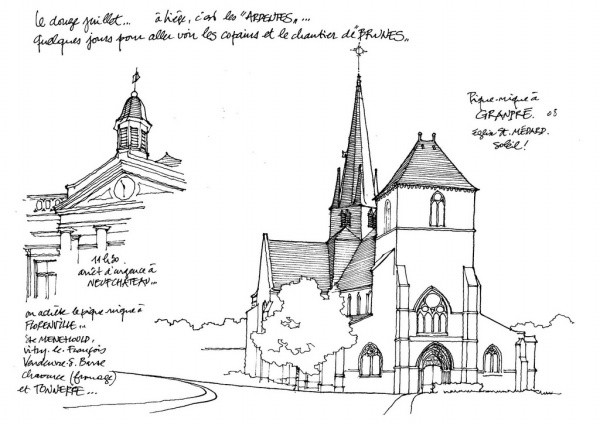 Le douze juillet... à Liège, c'est les "ARPENTES"...
Quelques jours pour aller voir les copains et le chantier de "BRUNES"..
Pique-nique à
GRANDPRÉ. 08
Eglise St. MÉDARD.
Soleil!
11h30
arrêt d'urgence à
NEUFCHÂTEAU...
on achète le pique-nique à
FLORENVILLE..
Ste MENEHOULD,
vitry-le-François
Vendeuvre-s-Barse
chaource (fromage)
et TONNERRE...